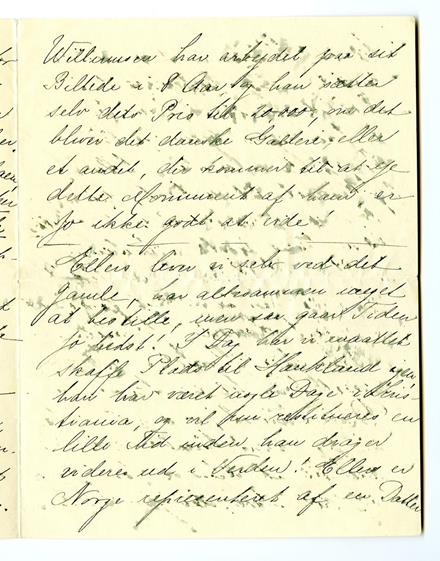 Willumsen har arbejdet paa sit
Billede i 8 Aar og han sætter
selv dets Pris til 20.000, om det
bliver det danske Galleri eller
et andet, der kommer til at eje
dette Monument af ham er
jo ikke godt at vide!
Ellers lever vi selv ved det
Gamle, har altsammen meget
at bestille, men saa gaar Tiden
jo bedst! I Dag har vi maattet
skaffe Plads til Haukland igen
han har været nogle Dage i Kris-
tiania, og vil nu restitueres en
lille Tid inden han drager
videre ud i Verden! Ellers er
Norge repræsenteret af en Datter